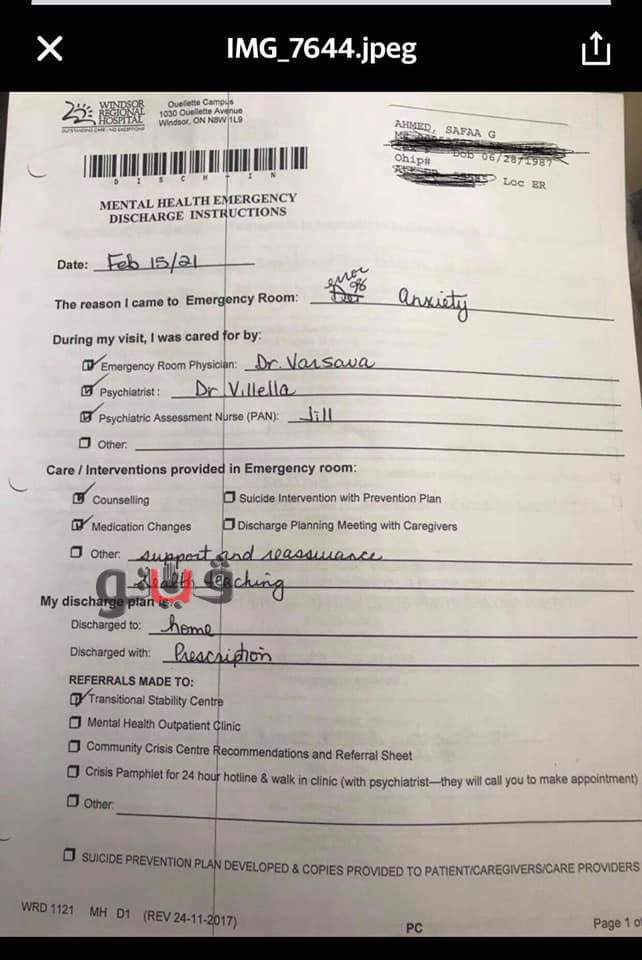 IMG_7644.jpeg
WINDSOR
REGIONAL
HOSPITAL
OUTSTANDING CARE - NO EXCEPTIONS!
Ouellette Campus
1030 Ouellette Avenue
Windsor, ON N8W 1L9
AHMED, SAFAA G
Dob 06/28/1987
Ohip#
Loc ER
DISCH-IN
MENTAL HEALTH EMERGENCY
DISCHARGE INSTRUCTIONS
Date: Feb 15/21
error
The reason I came to Emergency Room: Anxiety
During my visit, I was cared for by:
Emergency Room Physician: Dr. Varsava
Psychiatrist: Dr Villella
Psychiatric Assessment Nurse (PAN): Jill
Other:
Care / Interventions provided in Emergency room:
Counselling Suicide Intervention with Prevention Plan
Medication Changes Discharge Planning Meeting with Caregivers
Other: support and reassurance
health teaching
فيتو
My discharge plan is:
Discharged to: home
Discharged with: Prescription
REFERRALS MADE TO:
Transitional Stability Centre
Mental Health Outpatient Clinic
Community Crisis Centre Recommendations and Referral Sheet
Crisis Pamphlet for 24 hour hotline & walk in clinic (with psychiatrist—they will call you to make appointment)
Other:
SUICIDE PREVENTION PLAN DEVELOPED & COPIES PROVIDED TO PATIENT/CAREGIVERS/CARE PROVIDERS
WRD 1121 MH D1 (REV 24-11-2017) PC Page 1 of